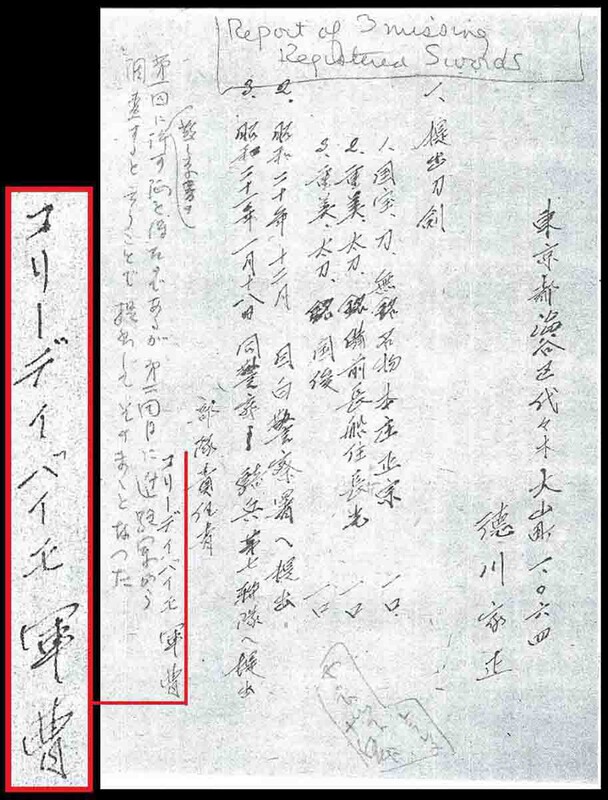 Report of 3 missing
Registered Swords
東京都渋谷区代々木大山町一〇六四
徳川家正
一、提出刀剣
1. 国宝、刀、無銘名物本庄正宗 一口
2. 重美、太刀、銘備前長船住長光 一口
3. 重美、太刀、銘国俊 一口
2. 昭和二十年十二月 目白警察署へ提出
3. 昭和二十一年一月十八日 同警察ヨリ騎兵第七聯隊へ提出
部隊責任者
コリーデイバイモ 軍曹
第一回に許可証を得たのであるが 第二回目に進駐軍から
調査すると云うことで提出してそのままとなった
コリーデイバイモ 軍曹